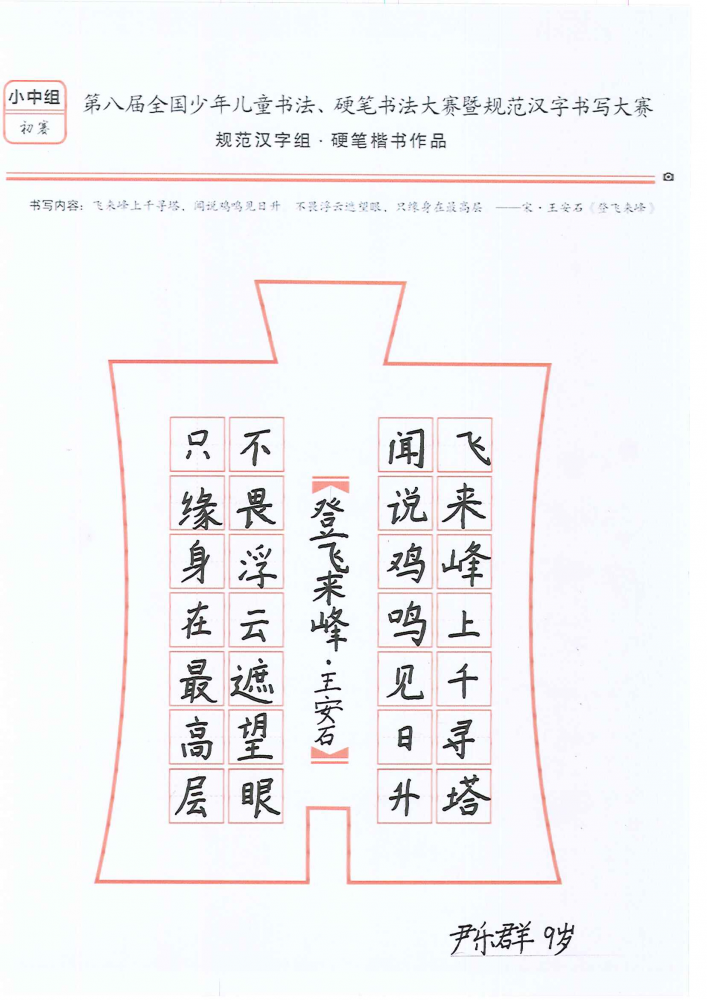 小中组
初赛
第八届全国少年儿童书法、硬笔书法大赛暨规范汉字书写大赛
规范汉字组·硬笔楷书作品
书写内容：飞来峰上千寻塔，闻说鸡鸣见日升。不畏浮云遮望眼，只缘身在最高层。——宋·王安石《登飞来峰》
飞来峰上千寻塔
闻说鸡鸣见日升
登飞来峰·王安石
不畏浮云遮望眼
只缘身在最高层
尹乐群 9岁